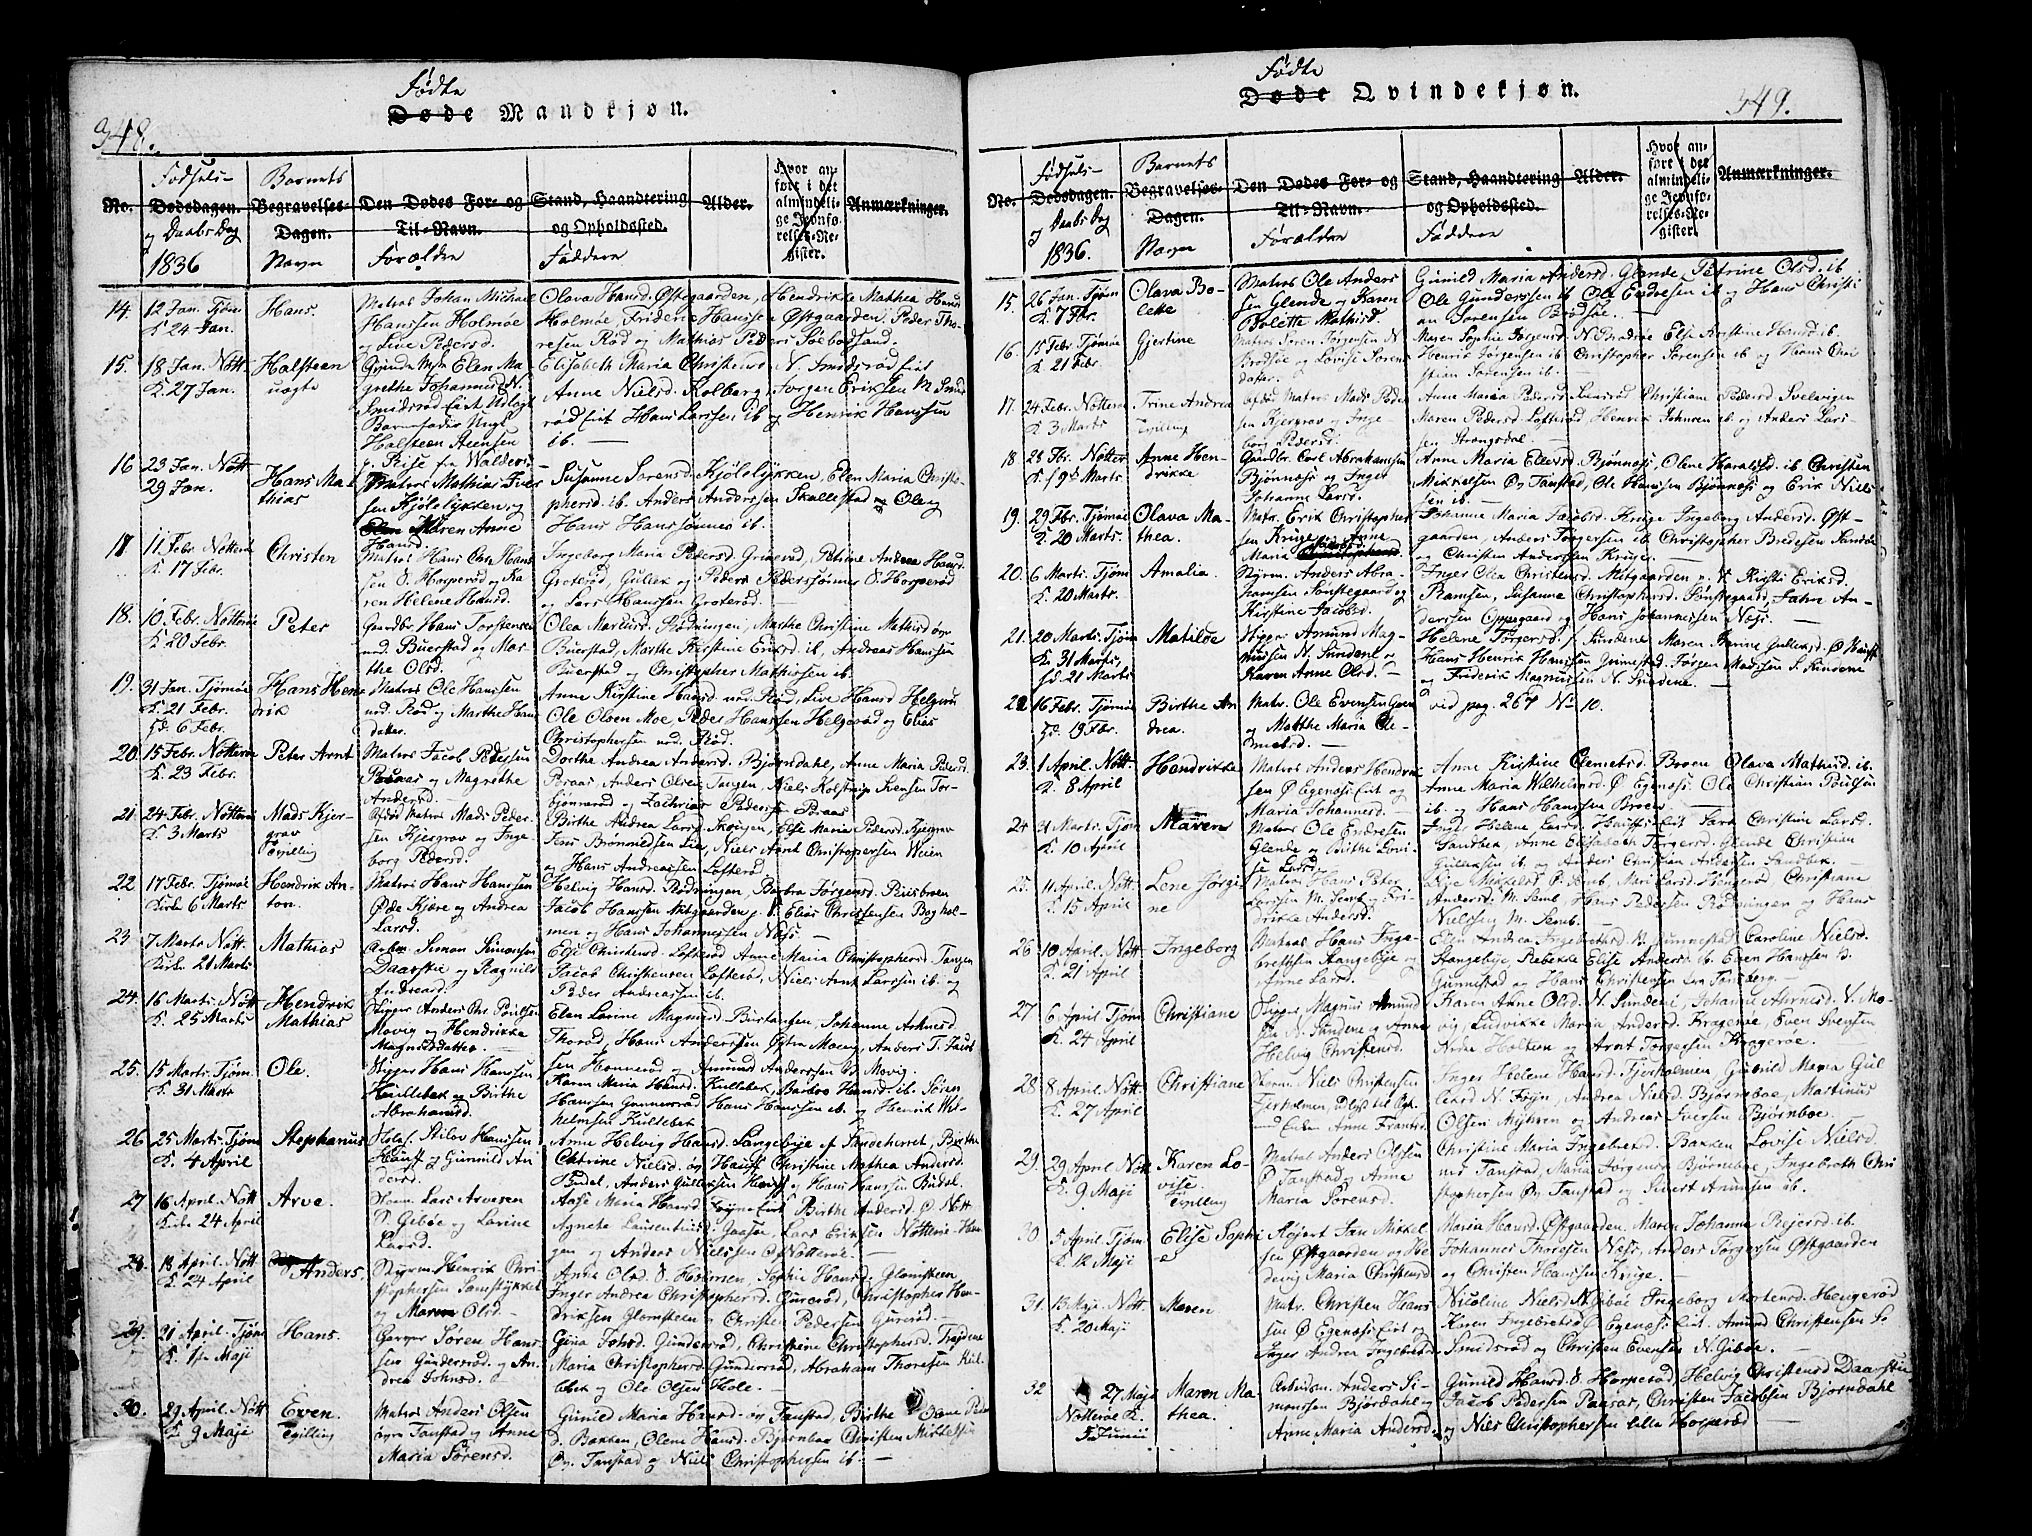 348.
Fødte
Døde Mandkjøn.
No.
Fødsels-
Dødsdagen.
og Daabs Dag
1836
Barnets
Begravelses-
Dagen.
Navn
Den Dødes For- og
Til-Navn.
Forældre
Stand, Haandtering
og Opholdssted.
Faddere
Alder.
Hvor an-
ført i det
almindeli-
ge Jevnfø-
relses-Re-
gister.
Anmærkninger.
14. 12 Jan. Tjøm
K. 24 Jan.
Hans.
Matros Johan Michael
Hanssen Holmøe
og Live Pedersd.
Olava Hansd. Østgaarden, Hendrikke Mathea Hansd.
Holmøe, Friderik Hanssen Østgaarden Peder Tho-
resen Rød og Mathias Peders
15. 18 Jan. Nött
K. 27 Jan.
Halsteen
uægte
Elen Ma-
grethe Johannesd. N.
Smidsrød
Barnefader Ungk.
Halsteen Arensen
Elisabeth Maria Christensd. N. Smidsrød
Anne Nielsd. Kolberg, Jørgen Eriksen N. Smids
rød Hans Larssen ib og Henrik Hanssen
ib. —
16 23 Jan. Nött
29 Jan.
Hans Ma-
thias
Matros Mathias Iver-
sen Kjøleløkken og
Maren Anne
Hansd.
Susanne Sørensd. Kjøleløkken, Elen Maria Christo-
phersd. ib. Anders Anderssen Skallestad og Ole og
Hans Hanssønner ib.
17 11 Febr. Nötterø
K. 17 Febr.
Christen
Matros Hans Chr. Hans
sen Ø. Horperød og Ka-
ren Helene Hansd.
Ingeborg Maria Pedersd. Grimerød, Petrine Andrea Hansd.
Groterød, Gullek og Peder Pederssønner Ø. Horperød
og Lars Hanssen Groterød.
18. 10 Febr. Nötterø
K. 20 Febr.
Peter
Gaardbr Hans Torstensen
ned. Buerstad og Mar-
the Olsd.
Olea Mariusd. Rødningen, Marthe Christine Mathisd. øv
Buerstad, Marthe Kirstine Eriksd. ib, Andreas Hanssen
Buerstad og Christopher Mathissen ib.
19. 31 Jan. Tjømøe
K. 21 Febr.
Hd. 6 Febr.
Hans Hen-
drik
Matros Ole Hanssen
ned. Rød og Marthe Hans
datter.
Anne Kirstine Hansd. ned. Rød, Live Hansd. Helgerød
Ole Olsen Moe Peder Hanssen Helgerød og Elias
Christophersen ned. Rød.
20. 15 Febr. Nötterø
K. 23 Febr.
Peter Arnt
Matros Jacob Pederssen
Paaraas og Magrethe
Andersd.
Dorthe Andrea Andersd. Bjørndahl, Anne Maria Pedersd.
Paaras, Anders Olsen Tangen, Niels Kolstrup Svensen Tor-
bjørnerød og Zacharias Pedersen Paaras
21 24 Febr. Nötterø
K. 3 Marts
Mads Kjer-
grav
Tvilling
Matros Mads Peder-
sen Kjergrav og Inge-
borg Pedersd.
Birthe Andrea Larsd. Skougen, Else Maria Pedersd. Kjergrav
Jens Brønnildsen Lie, Niels Arnt Christophersen Weien
og Hans Andreassen Lofterød.
22 17 Febr. Tjømøe
Kirke 6 Marts
Hendrik An-
ton.
Matros Hans Hanssen
Øde Kjære og Andrea
Larsd.
Helvig Hansd. Rødningen, Barbra Jørgensd. Riisbroen
Jacob Hanssen Mitgaarden, Elias Christensen Boghol-
men og Hans Johannessen Næss
23 7 Marts Nött.
Kirke 21 Marts
Mathias
Arbm. Simon Simonsen
Daarstie og Ragnild
Andreasd.
Else Christensd. Lofterød Anne Maria Christophersd. Tangen
Jacob Christensen Lofterød, Niels Arnt Larssen ib. og
Peder Andreassen ib.
24. 16 Marts Nött
K. 25 Marts
Hendrik
Mathias
Skipper Anders Chr. Poulsen
Movig og Hendrikke
Magnusdatter.
Elen Lovine Magnusd. Burtansen, Johanne Arnesd.
Thorød, Hans Anderssen Østre Moevig, Anders T.
sen Honnerød og Amund Anderssen V. Movig.
25. 15 Marts. Tjøm.
K. 31 Marts
Ole.
Skipper Hans Hanssen
Kullebek og Birthe
Abrahamsd.
Karen Maria Hansd. Kullebek, Barbra Hansd. ib. Søren
Hanssen Gunnersrød Hans Hanssen ib. og Henrik Wil-
helmsen Kullebek
26 25 Marts. Tjøm.
K. 4 April
Stephanus
Stilov Hanssen
Hauff og Gunnild An-
dersd.
Anne Helvig Hansd. Langebye af Sandeherret, Birthe
Cathrine Nielsd. ov Hauff Christine Mathea Andersd.
Budal, Anders Gulleksen Hauff og Hans Hanssen Budal.
27 16 April. Nött
Kirke 24 April
Arve.
Lars Arvesen
V. Gibøe og Lovine
Larsd.
Aase Maria Hansd. Birthe Andersd. Ø Nött
Agnete Laurentiusd. Lars Eriksen Nötterøe
gen og Anders Nielssen Ø Nötterøe.
28. 18 April. Nött
K. 24 April
Anders.
Styrm Henrik Chri-
stophersen Sønstykket
og Maren Olsd.
Anne Olsd. Ø. Holmen, Sophie Hansd. Glomsteen
Inger Andrea Christophersd. Gurerød, Christopher Hen-
driksen Glomsteen og Christen Pedersen Gurerød.
29. 21 April. Tjøm
K. 1ste Maji
Hans.
Søren Hans
sen Gundersrød og An-
drea Johnsd.
Gina Johnsd. Gundersrød, Christine Christophersd.
Maria Christophersd. Gundersrød, Abraham Thoresen Kul-
lebek og Ole Olsen Hole.
30. 29 April. Nött
K. 9 Maji
Even.
Tvilling
Matros Anders Olsen
øvre Tanstad og Anne
Maria Sørensd.
Gunild Maria Hansd. øv Tanstad, Birthe
d. Bakken, Olene Hansd. Bjørnebøe Christen Mikkelsen
Øv. Tanstad og Niels Christophersen ib.
349.
Fødte
Døde Qvindekjøn.
No.
Fødsels-
Dødsdagen.
og Daabs Dag
1836.
Barnets
Begravelses-
Dagen.
Navn
Den Dødes For- og
Til-Navn.
Forældre
Stand, Haandtering
og Opholdssted.
Faddere
Alder.
Hvor an-
ført i det
almindeli-
ge Jevnfø-
relses-Re-
gister.
Anmærkninger.
15. 26 Jan. Tjøm
K. 7 Febr.
Olava Bo-
lette
Matros Ole Anders
sen Glende og Karen
Bolette Mathisd.
Gunild Maria Andersd. Glende, Petrine Olsd. ib
Ole Gunderssen ib Ole Endresen ib og Hans Christi
an Sørensen Brødsøe.
16. 15 Febr. Tjømøe
K. 21 Febr.
Gjertine
Matros Søren Jørgensen N
Brødsøe og Lovise Søren
datter.
Maren Sophie Jørgensd. N Brødsøe Else Kirstine Hansd. ib.
Henrik Jørgensen ib. Christopher Sørensen ib og Hans Chri
stian Sørensen ib.
17. 24 Febr. Nötterøe
K. 3 Marts
Trine Andrea
Tvilling
Matros Mads Peder
sen Kjergrav og Inge-
borg Pedersd.
Anne Maria Pedersd. Christian Pedersd. Svelvingen
Maren Pedersd. Lofterød Henrik Johnsen ib og Anders Lars-
sen
18 28 Fbr. Nötter
K. Marts
Anne Hen-
drikke
Gaardbr. Carl Abrahamsen
Bjønnæss og Inger
Johanne Larsd.
Anne Maria Ellevsd. Bjønnæss, Olene Haralsd. ib Christen
Mikkelsen Øv Tanstad, Ole Hanssen Bjønnæss og Erik Niels
sen ib.
19. 29 Fbr. Tjømøe
K. 20 Marts.
Olava Ma-
thea.
Matr. Erik Christopher
sen Kruge og Anne
Maria Jacobsd.
Johanne Maria Jacobsd. Kruge Ingeborg Andersd. Øst-
gaarden, Anders Torgersen ib. Christopher Bredesen Sandøe
og Christen Anderssen Kruge.
20. 6 Marts. Tjøm
K. 20 Marts.
Amalia.
Styrm. Anders Abra-
hamsen Sønstegaard og
Kirstine Jacobsd.
Inger Olea Christensd. Mitgaarden Kirsti Eriksd.
Ramsen, Susanne Christophersd. Sønstegaard, Jahn An-
derssen Oppegaard og Hans Johannessen Næss.
21. 20 Marts. Tjøm
K. 31 Marts.
Hd. 21 Marts
Matilde
Skipper Amund Mag-
nussen N. Sundene og
Karen Anne Olsd.
Helene Torgersd. S. Sundene Maren Janne Gulleksd. Ø Hauff
Hans Henrik Hanssen Grimestad Jørgen Madssen S. Sundene
og Friderik Magnussen N. Sundene.
22 16 Febr. Tjømøe
Hd. 19 Fbr.
Birthe An
drea.
Matr. Ole Evensen
og Marthe Maria Cle-
metsd.
vid pag. 267 No 10.
23. 1 April. Nött.
K. 8 April
Hendrikke
Matros Anders Hendrik
sen Ø Egenæss og
Maria Johannesd.
Anne Kirstine Clemetsd. Broen Olava Mathisd. ib.
Anne Maria Wilhelmsd. Ø Egenæss. Ole Christian Poulsen
ib. og Hans Hanssen Broen.
24 31 Marts. Tjøm
K. 10 April
Maren
Matros Ole Endresen
Glende og Birthe Lovi-
se Larsd.
Inger Helene Larsd. Hauff Sara Christine Larsd.
Sandbek, Anne Elisabeth Torgersd. Glende Christian
Gulleksen ib. og Anders Christian Andersen Sandbek.
25. 11 April. Nött.
K. 15 April
Lene Jørgi
ne
Matros Hans Peter
Larssen M. Semb og Fri-
drikke Andersd.
Else Mikkelsd. Ø. Semb, Mari Larsd. Hengerød Christiane
Andersd. M. Semb Hans Pedersen Rødningen og Hans
Nielssen M. Semb.
26 10 April. Nött
K. 21 April
Ingeborg
Hans Inge-
bretssen Hangebye og
Anne Larsd.
Elen Andrea Ingebretsd. Gunnestad Caroline Nielsd.
Hangebye, Rebekke Elise Andersd. ib. Even Hanssen Ø.
Gunnestad og Hans Christensen fra Tønsberg.
27 6 April. Tjøm
K. 24 April
Christiane
Skipper Magnus Amund
sen N. Sundene og Anne
Helvig Christensd.
Karen Anne Olsd. N. Sundene, Johanne Arnesd. V. Mo-
vig, Ludvikke Maria Andersd. Kragerøe, Even Svensen
Nedre Holten og Arnt Torgersen Kragerøe.
28 8 April. Nött
K. 27 April
Christiane
Niels Christensen
Fjærholmen,
Anne Frantsd.
Inger Helene Hansd. Fjerholmen Gunild Maria Gul
leksd N. Føjn, Andrea Nielsd. Bjørnebøe, Martinus
Olsen Myhren og Andreas Iversen Bjørnebøe.
29. 29 April Nött
K. 9 Maji
Karen Lo-
vise.
Tvilling
Matros Anders Olssen
Ø Tanstad og Anne
Maria Sørensd.
Christine Maria Ingebretsd. Bakken Lovise Nielsd.
Tanstad, Maria Jørgensd. Bjørnebøe, Ingebreth Chri
stophersen Øv Tanstad og Sivert Amunsen ib.
30 5 April. Tjøm
K. 12 Maji
Elise Sophi
e
Jan Mikkel
sen Østgaarden og He
devig Maria Christensd.
Maria Hansd. Østgaarden. Maren Johanne Rejersd. ib.
Johannes Thoresen Næss, Anders Torgersen Østgaarden
og Christen Hanssen Kruge.
31. 13 Maji. Nött.
K. 20 Maji
Maren
Matr. Christen Hans
sen Ø Egenæss og
Inger Andrea Ingebretsd.
Nicoline Nielsd. N. Gibøe Ingeborg Mortensd. Hengerød
Karen Ingebretsd. Egenæss Amund Christensen
Smidsrød og Christen Evensen N. Gibøe.
32 27 Maji
Nötterøe K.
Junii
Maren Ma-
thea.
Arbeidsm. Anders Si-
monssen Bjørdahl og
Anne Maria Andersd.
Gunild Hansd. Ø. Horperød Helvig Christensd Daarstie
Jacob Pedersen Paaras, Christen Jacobsen Bjørndahl
og Niels Christophersen lille Horperød